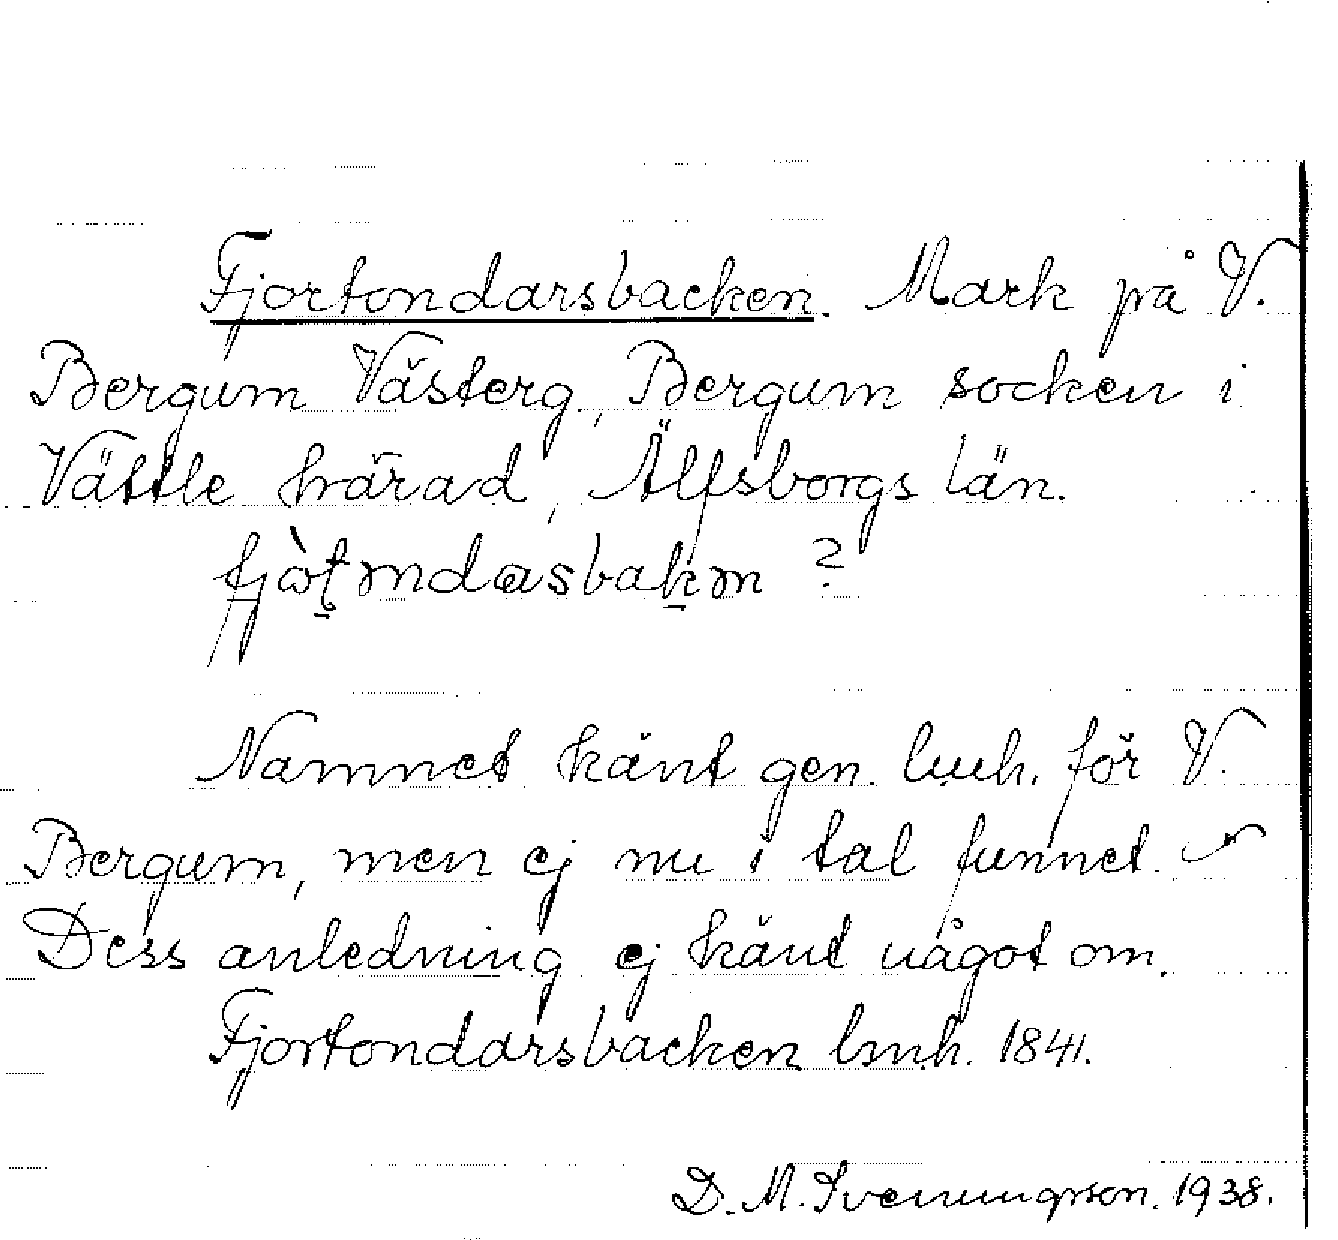 Fjortondarsbacken. Mark på V.
Bergum Västerg., Bergum socken i
Vättle härad, Älfsborgs län.
?
Namnet känt gen. lmh. för V.
Bergum, men ej nu i tal funnet.
Dess anledning ej känt något om.
Fjortondarsbacken lmh. 1841.
D. M. Svenningsson. 1938.